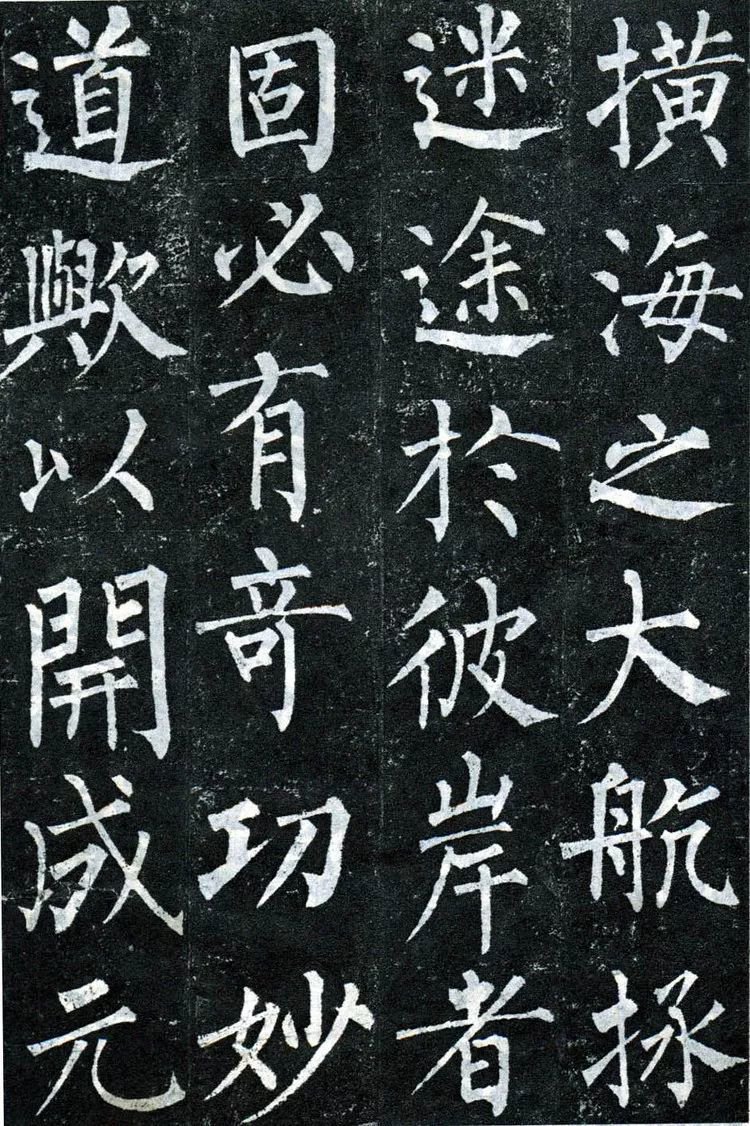 横海之大航拯
迷途於彼岸者
固必有竒功妙
道歟以開成元